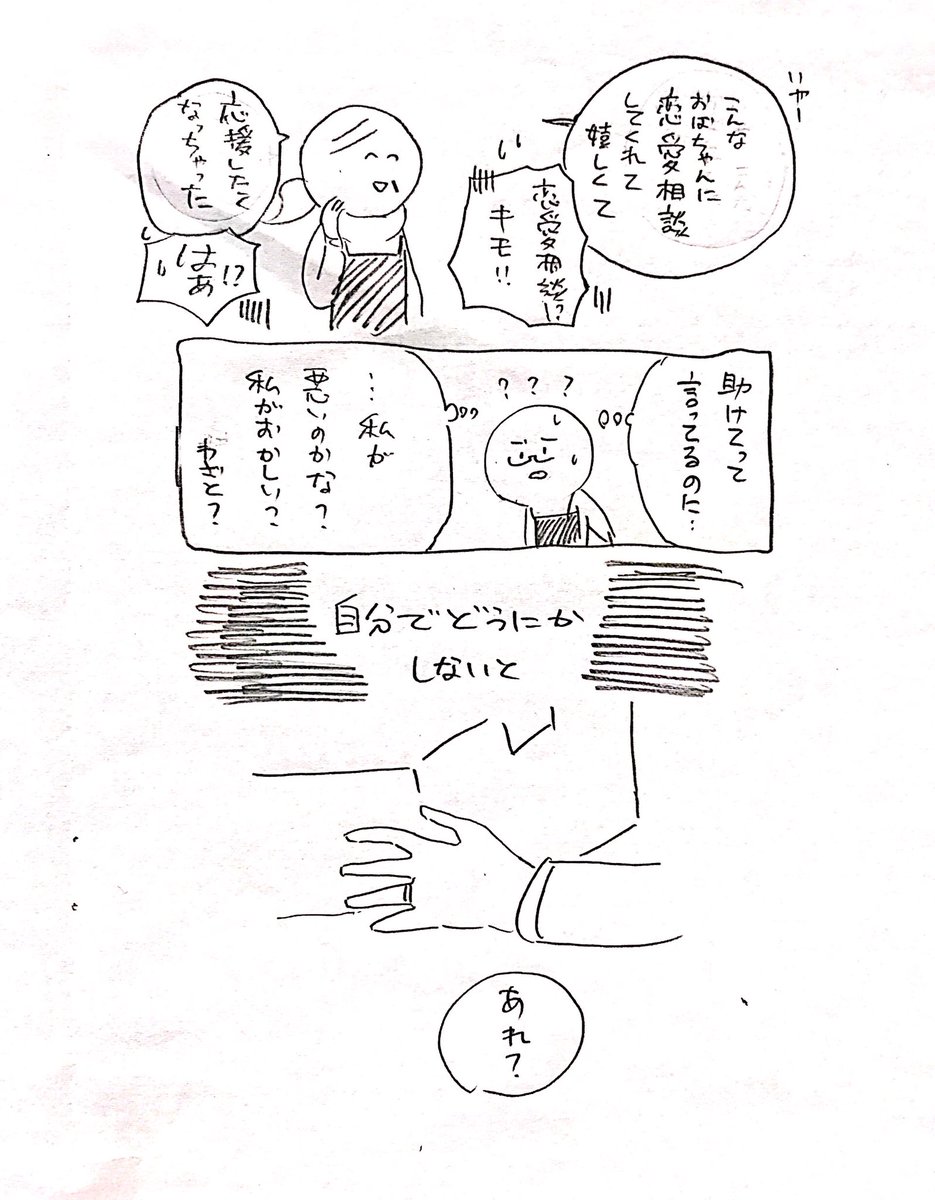 いやー
こんな
おばちゃんに
恋愛相談
してくれて
嬉しくて
恋愛相談!?
キモ!!
応援したく
なっちゃった
はあ!?
助けてって
言ってるのに…
???
…私が
悪いのかな?
私がおかしい?
わざと?
自分でどうにか
しないと
あれ?